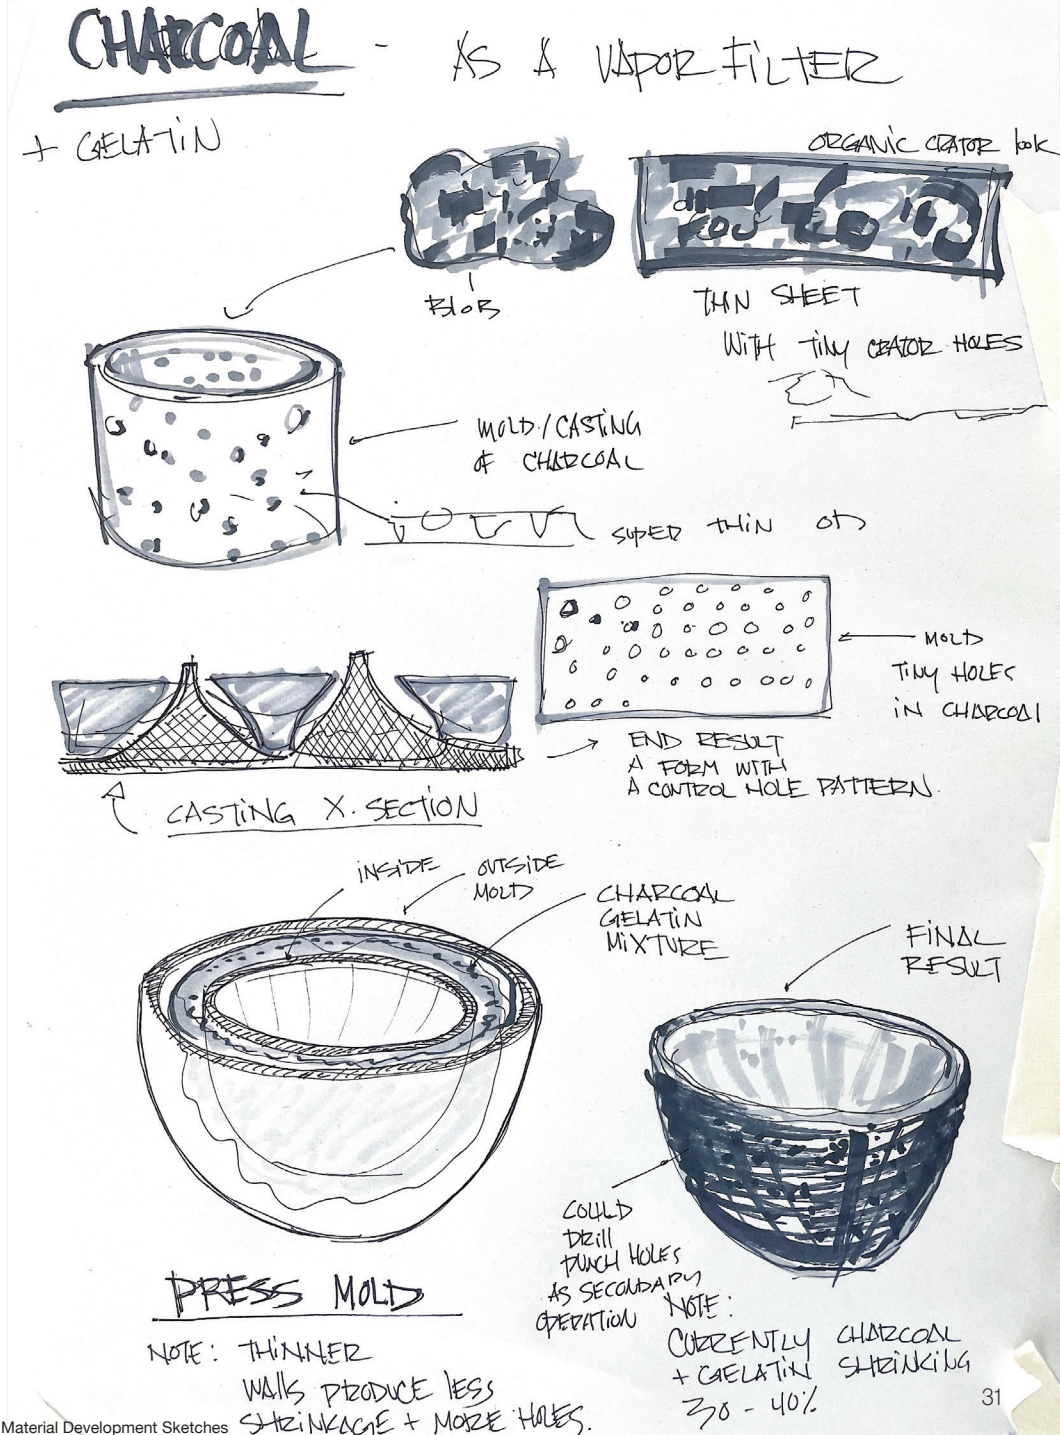 CHARCOAL - AS A VAPOR FILTER
+ GELATIN
ORGANIC CRATOR look
BLOB
THIN SHEET
WITH TINY CRATOR HOLES
MOLD/CASTING
of CHARCOAL
SUPER THIN
MOLD
TINY HOLES
IN CHARCOAL
END RESULT
A FORM WITH
A CONTROL HOLE PATTERN.
CASTING X-SECTION
INSIDE
OUTSIDE
MOLD
CHARCOAL
GELATIN
MIXTURE
FINAL
RESULT
COULD
DRILL
PUNCH HOLES
AS SECONDARY
OPERATION
PRESS MOLD
NOTE: THINNER
WALLS PRODUCE LESS
SHRINKAGE + MORE HOLES.
NOTE:
CURRENTLY CHARCOAL
+ GELATIN SHRINKING
30 - 40%
31
Material Development Sketches